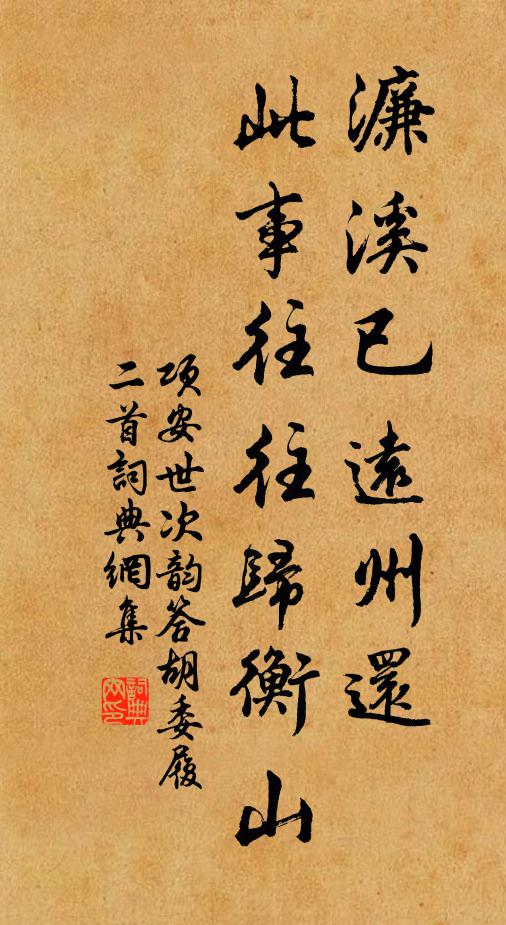 濂溪已遠州還
此事往往歸衡山
項安世次韵答胡委履
二首詞典網集
詞典网印